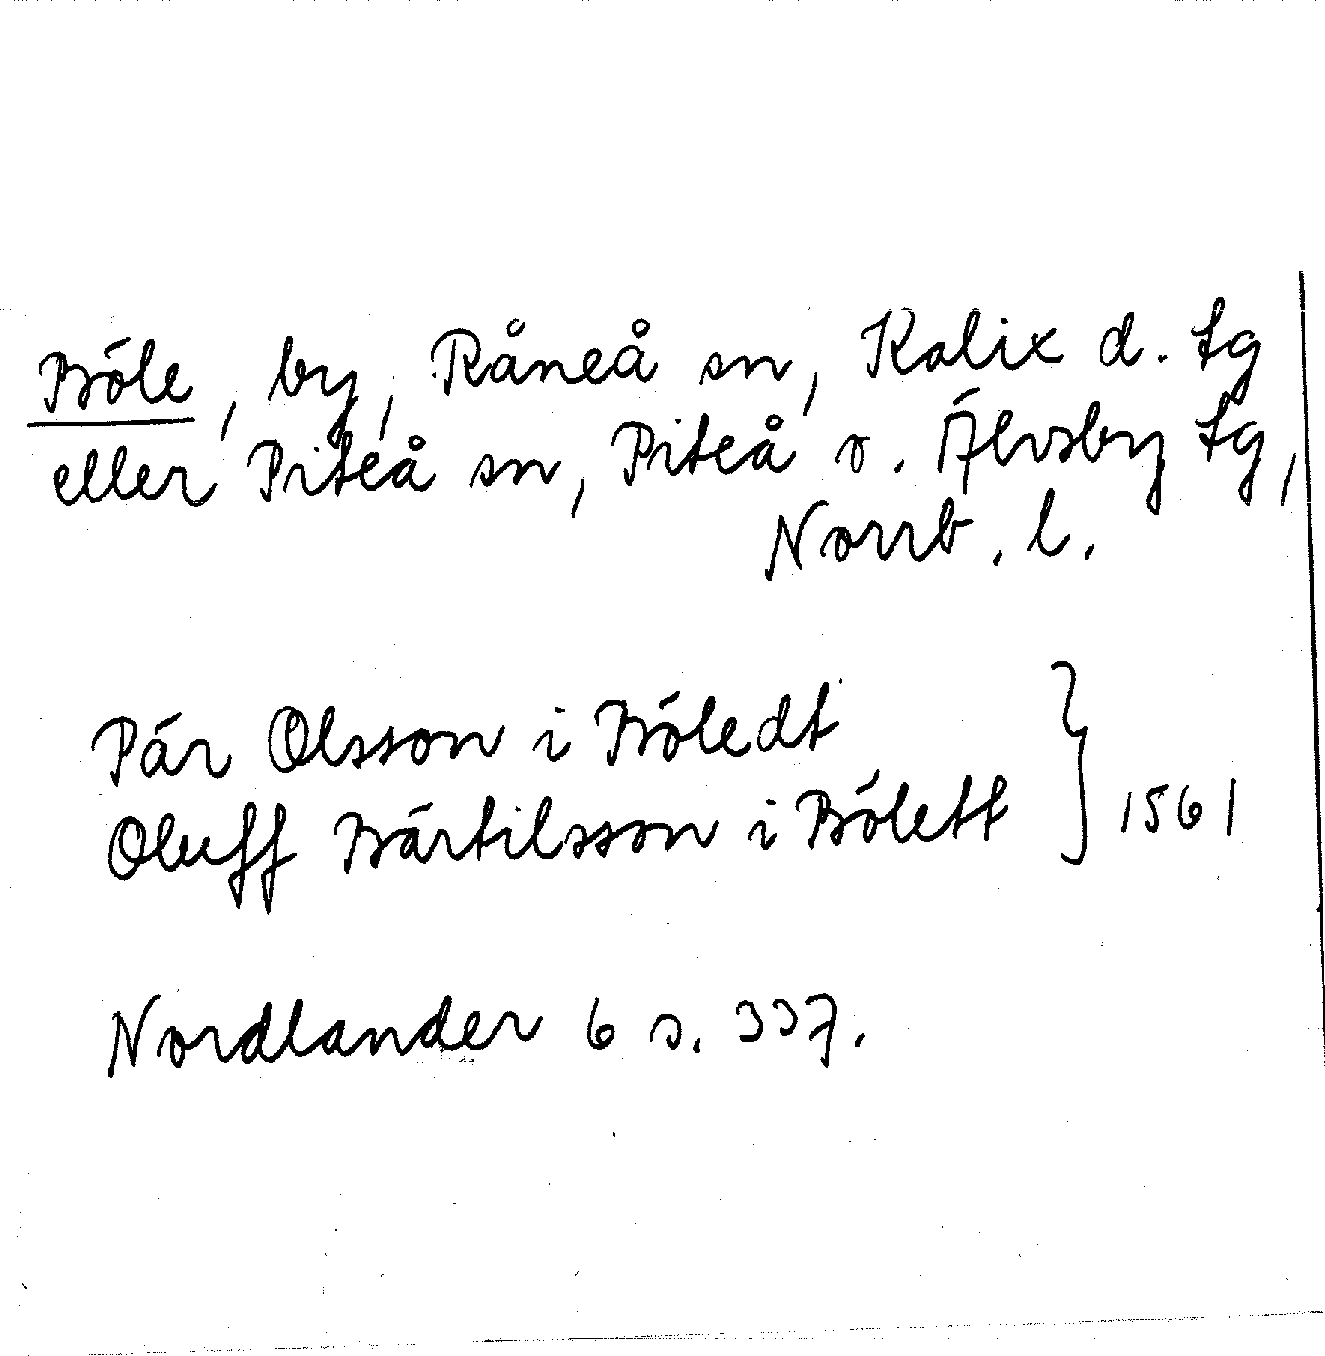 Böle, by, Råneå sn, Kalix d. tg
eller Piteå sn, Piteå o. Älvsby tg,
Norrb. l.
Pär Olsson i Böledt
Oluff Bärtilsson i Bölett } 1561
Nordlander 6 s. 337.